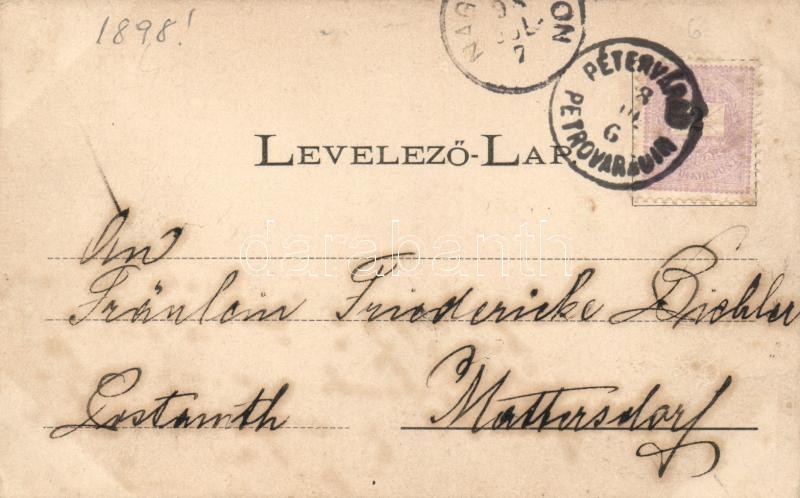 1898!
6
NAG ON
7
PÉTERVÁRAD
PETROVARADIN
6
LEVELEZŐ-LAP.
darabanth
An
Fräulein Friedericke Bichler
Postamth Mattersdorf